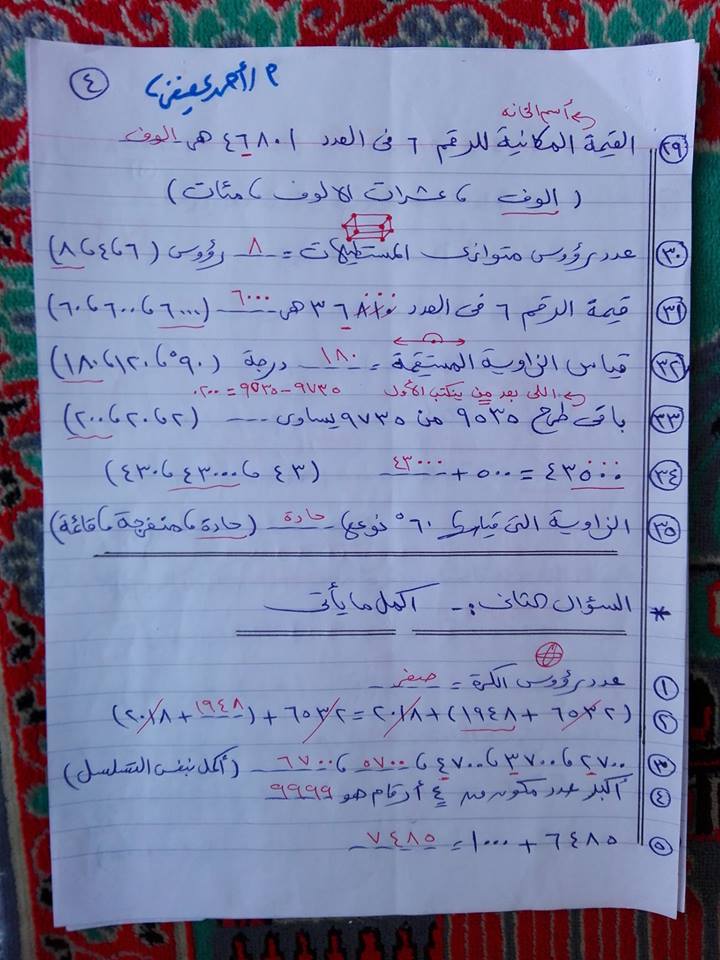 ٤
م / أحمد
أسم الخانه
٢٩ القيمة المكانية للرقم ٦ فى العدد ٤٦٨٠١ هى الوف
( الوف ، عشرات الالوف ، مئات )
٣٠ عدد رؤوس متوازى المستطيلات = ٨ رؤوس ( ٦ ، ٤ ، ٨ )
٣١ قيمة الرقم ٦ فى العدد هى ٦٠٠٠ ( ٦٠٠٠ ، ٦٠٠ ، ٦٠ )
٣٢ قياس الزاوية المستقيمة = ١٨٠ درجة ( ٩٠° ، ١٢٠ ، ١٨٠ )
اللى بعد من يتكتب الأول ٩٧٣٥ - ٩٥٣٥ = ٢٠٠
٣٣ باقى طرح ٩٥٣٥ من ٩٧٣٥ يساوى .... ( ٢ ، ٢٠ ، ٢٠٠ )
٣٤ ٤٣٥٠٠ = ٥٠٠ + ٤٣٠٠٠ ( ٤٣ ، ٤٣٠٠٠ ، ٤٣٠ )
٣٥ الزاوية التى قياسها ٦٠° نوعها حادة ( حادة ، منفرجة ، قائمة )
* السؤال الثانى :- اكمل ما يأتى
١ عدد رؤوس الكرة = صفر
٢ ( ٦٥٣٢ + ١٩٤٨ ) + ٢٠١٨ = ٦٥٣٢ + ( ١٩٤٨ + ٢٠١٨ )
٣ ٢٧٠٠ ، ٣٧٠٠ ، ٤٧٠٠ ، ٥٧٠٠ ، ٦٧٠٠ ( أكمل بنفس التسلسل )
٤ أكبر عدد مكون من ٤ أرقام هو ٩٩٩٩
٥ ٦٤٨٥ + ١٠٠٠ = ٧٤٨٥